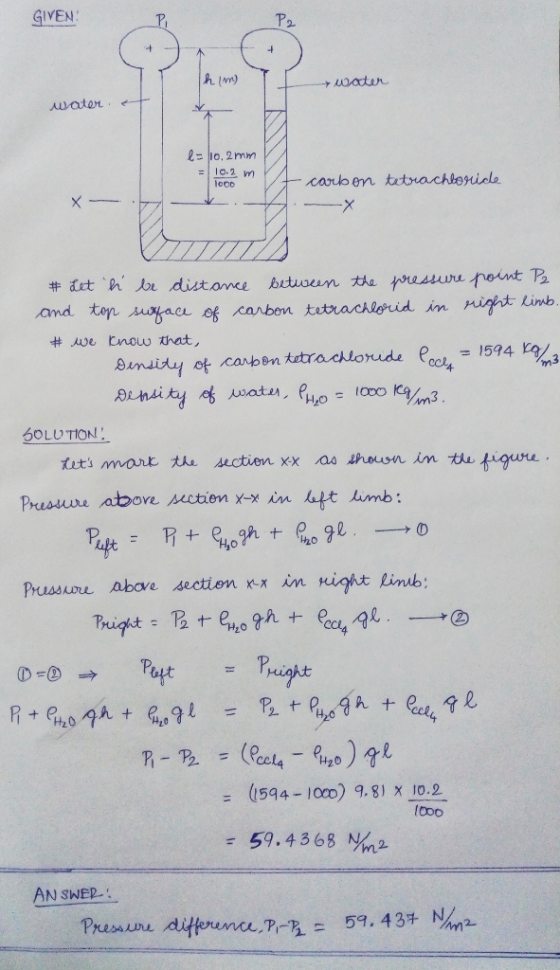 GIVEN:
P₁ P₂
+ +
h (m)
water
water
l = 10.2mm
= 10.2/1000 m
carbon tetrachloride
X X
# Let 'h' be distance between the pressure point P₂
and top surface of carbon tetrachlorid in right limb.
# we know that,
Density of carbon tetrachloride ρ_CCl₄ = 1594 Kg/m3
Density of water, ρ_H₂O = 1000 Kg/m3.
SOLUTION:
Let's mark the section x-x as shown in the figure.
Pressure above section x-x in left limb:
P_left = P₁ + ρ_H₂O gh + ρ_H₂O gl. → ①
Pressure above section x-x in right limb:
P_right = P₂ + ρ_H₂O gh + ρ_CCl₄ gl. → ②
① = ② ⇒ P_left = P_right
P₁ + ρ_H₂O gh + ρ_H₂O gl = P₂ + ρ_H₂O gh + ρ_CCl₄ gl
P₁ - P₂ = (ρ_CCl₄ - ρ_H₂O) gl
= (1594-1000) 9.81 × 10.2/1000
= 59.4368 N/m2
ANSWER:
Pressure difference, P₁-P₂ = 59.437 N/m2